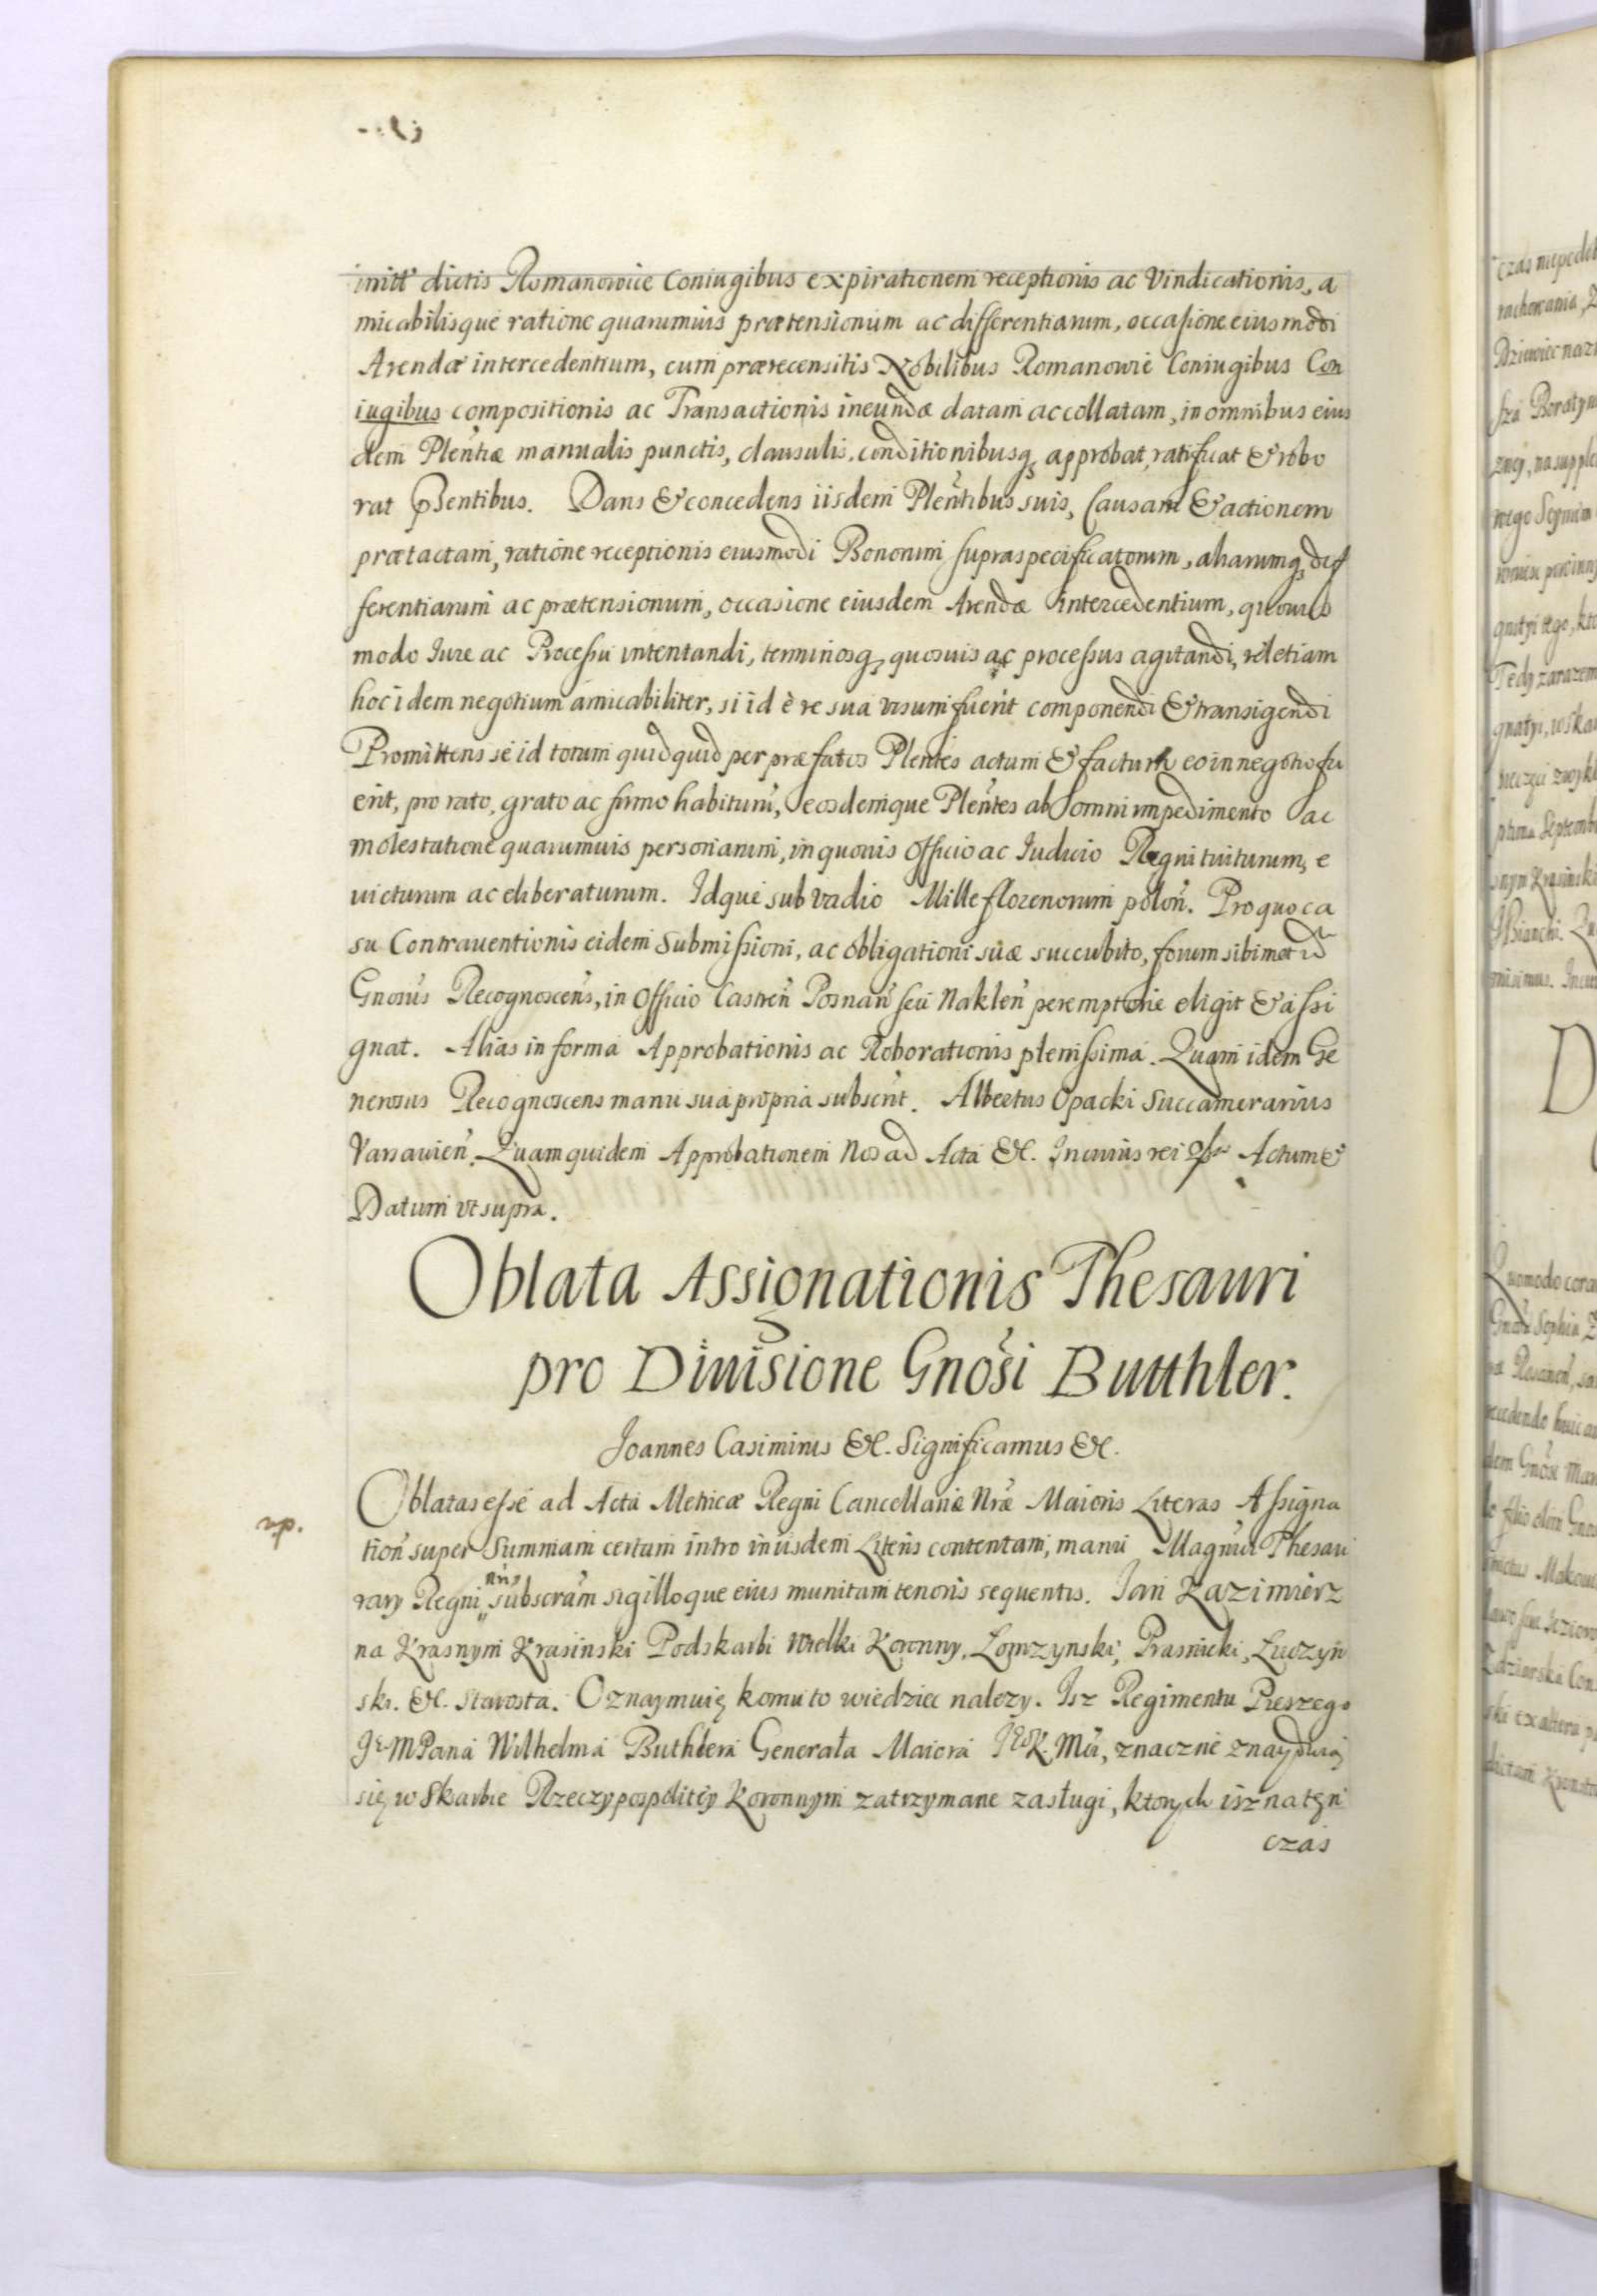 initt dictis Romanowice Coniugibus expirationem receptionis ac Vindicationis, a
micabilisque ratione quarumuis prætensionum ac differentiarum, occasione eiusmodi
Arendæ intercedentium, cum prærecensitis Nobilibus Romanowie Coniugibus Con
iugibus compositionis ac Transactionis ineundæ datam ac collatam, in omnibus eius
dem Plentiæ manualis punctis, clausulis, conditionibusq, approbat, ratificat & robo
rat psentibus. Dans & concedens iisdem Plentibus suis, Causam & actionem
prætactam, ratione receptionis eiusmodi Bonorum supraspecificatorum, aliarumq, dif
ferentiarum ac prætensionum, occasione eiusdem Arendæ intercedentium, quouis
modo Iure ac Processu intentandi, terminosq, quosuis ac processus agitandi, vel etiam
hoc idem negotium amicabiliter, si id è re sua visum fuerit componendi & transigendi
Promittens se id totum quidquid per præfatos Plentes actum & factum eo in negotio fu
erit, pro rato, grato ac firmo habiturum, eosdemque Plentes ab omni impedimento ac
molestatione quarumuis personarum, in quouis Officio ac Iudicio Regni tuiturum, e
uicturum ac eliberaturum. Idque sub vadio Mille florenorum polon. Pro quo ca
su Contrauentionis eidem Submissioni, ac obligationi suæ succubito, forum sibimet id
Gnosus Recognoscens, in Officio Castren Posnan seu Naklen peremptorie eligit & assi
gnat. Alias in forma Approbationis ac Roborationis plenissima. Quam idem Ge
nerosus Recognoscens manu sua propria subscrit. Albertus Opacki Succamerarius
Varsauien. Quam quidem Approbationem Nos ad Acta &c. In cuius rei Actum &
Datum vt supra.
Oblata Assignationis Thesauri
pro Diuisione Gnosi Butthler.
Joannes Casimirus &c. Significamus &c.
Oblatas esse ad Acta Metricæ Regni Cancellariæ Nræ Maioris Literas Assigna
tion super Summam certam intro in iisdem Literis contentam, manu Magnifici Thesau
rarij Regni nri subscram sigilloque eius munitam tenoris sequentis. Jan Kazimierz
na Krasnym Krasinski Podskarbi Wielki Koronny, Lomzynski, Prasnicki, Luczyn
ski. &c. Starosta. Oznaymuię komu to wiedziec nalezy. Isz Regimentu Pieszego
Je MPana Wilhelma Buthlera Generała Maiora JeoK. Mci, znacznie znayduią
się w Skarbie Rzeczypospolitey Koronnym zatrzymane zasługi, ktorych isz na tęn
czas